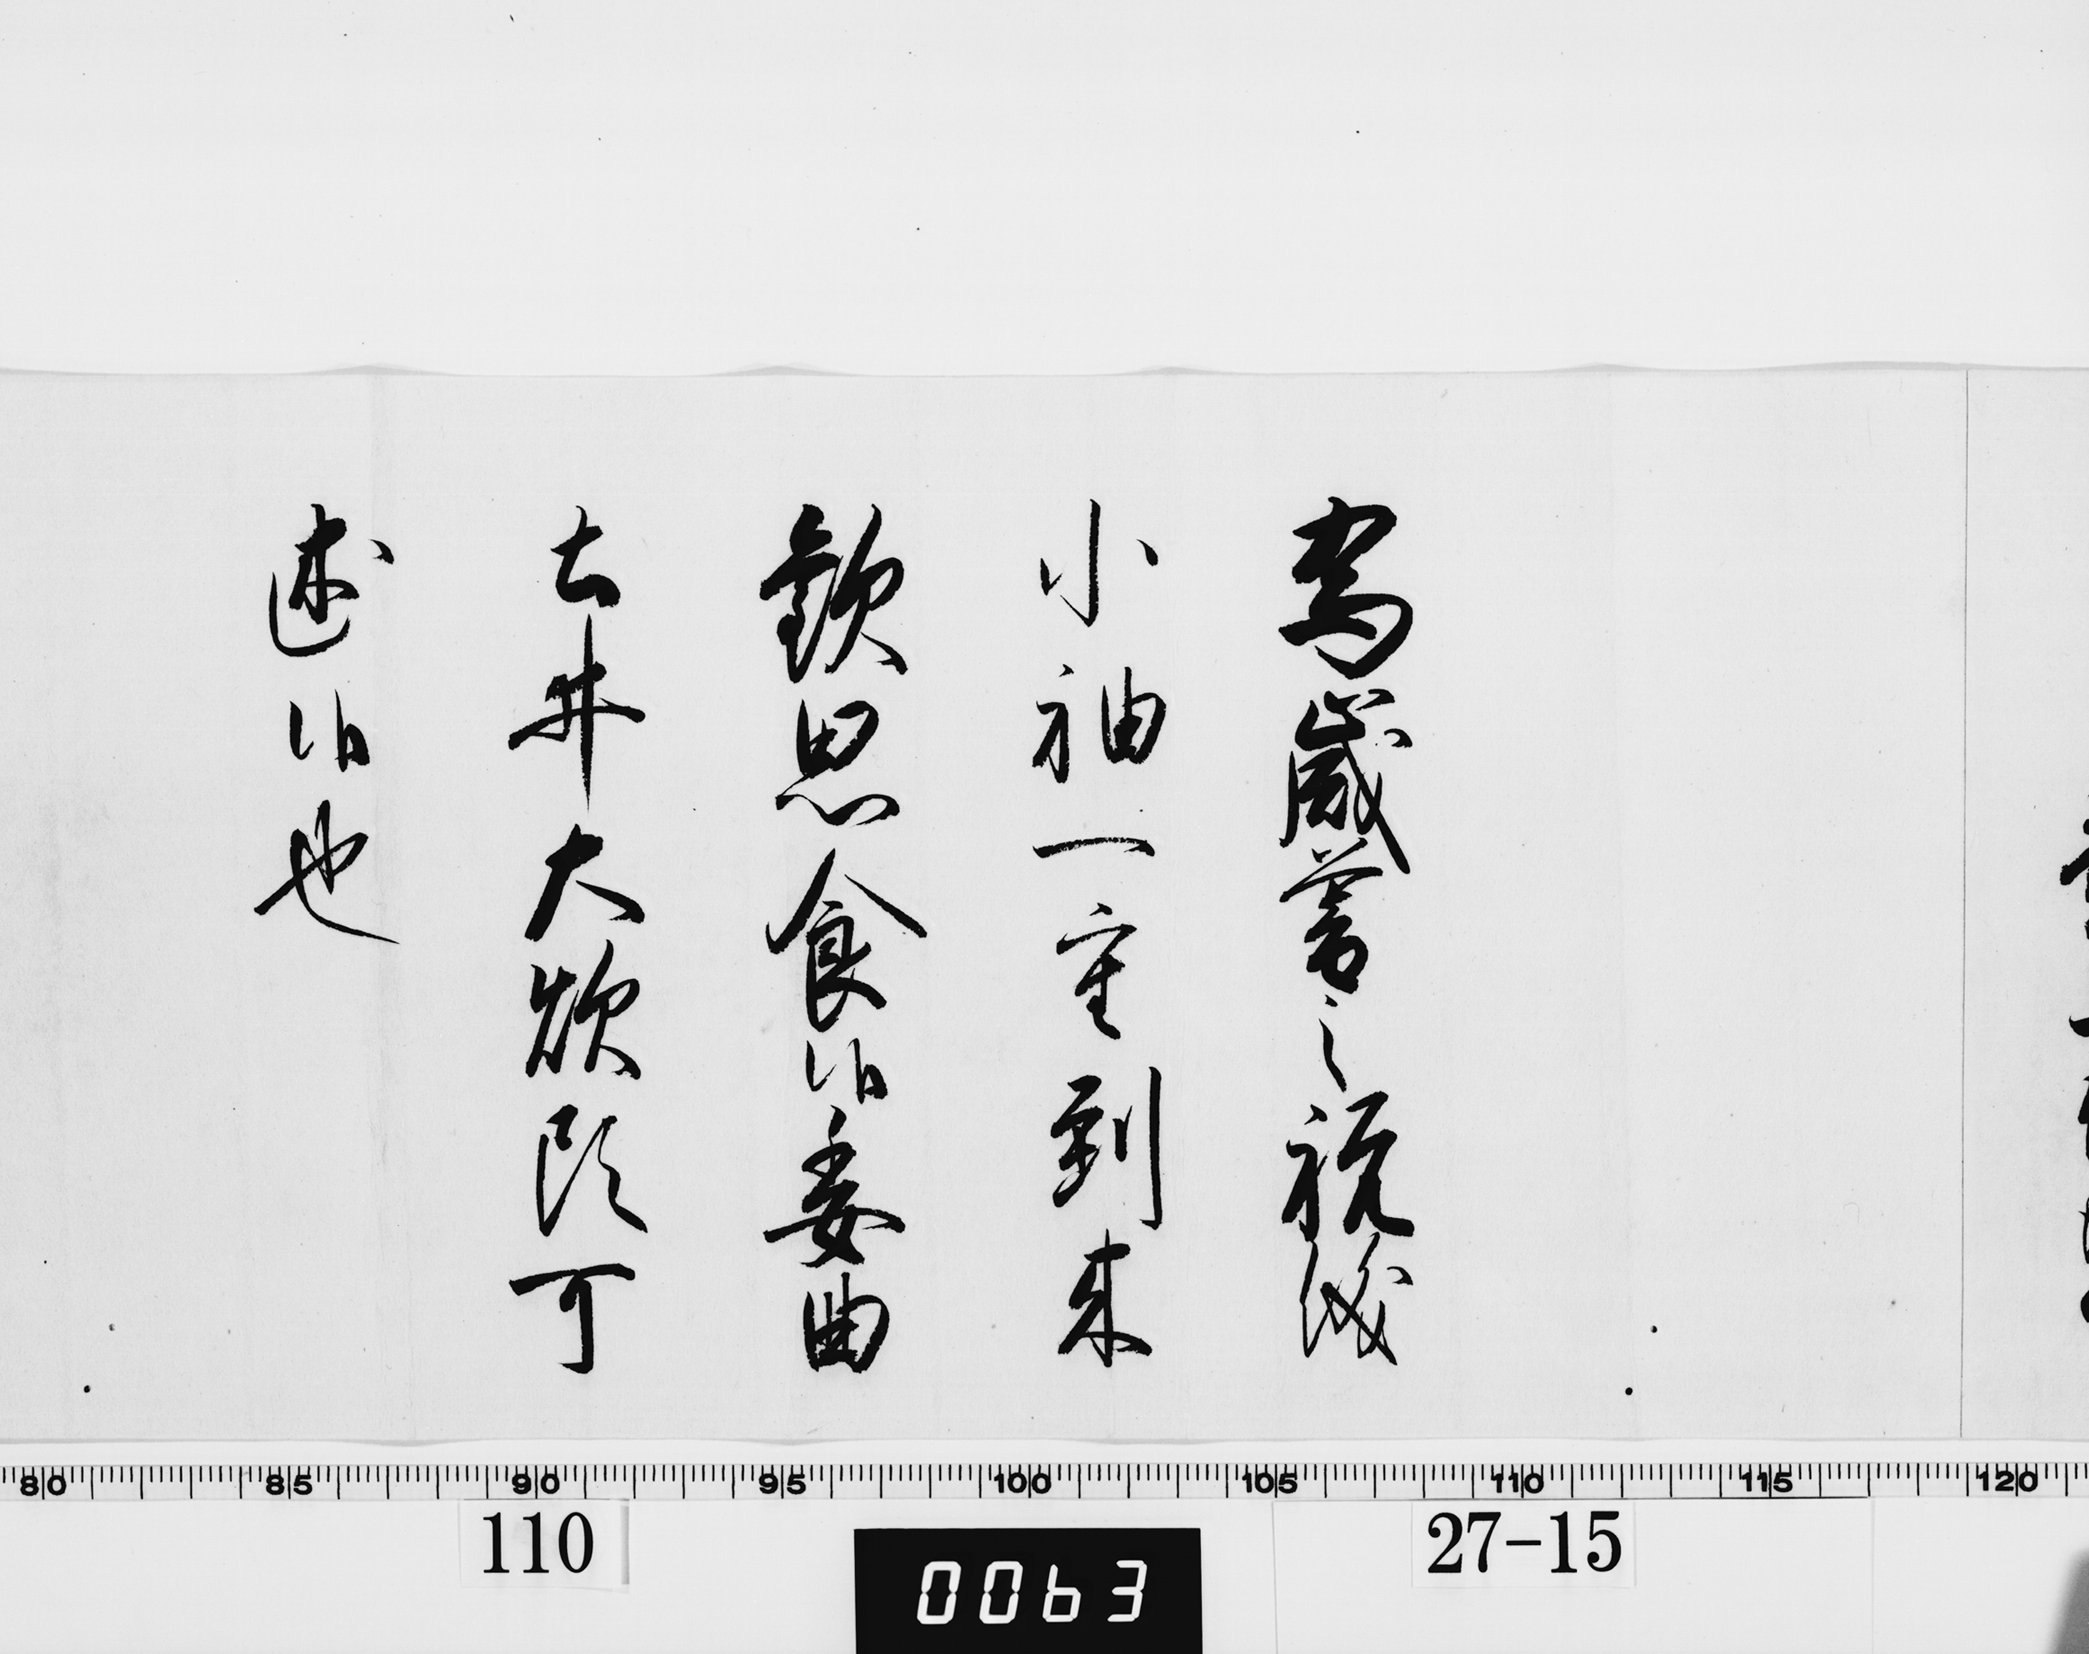 為歳暮之祝儀
小袖一重到来
歓思食候委曲
土井大炊頭可
述候也
80 85 90 95 100 105 110 115 120
110
0063
27-15